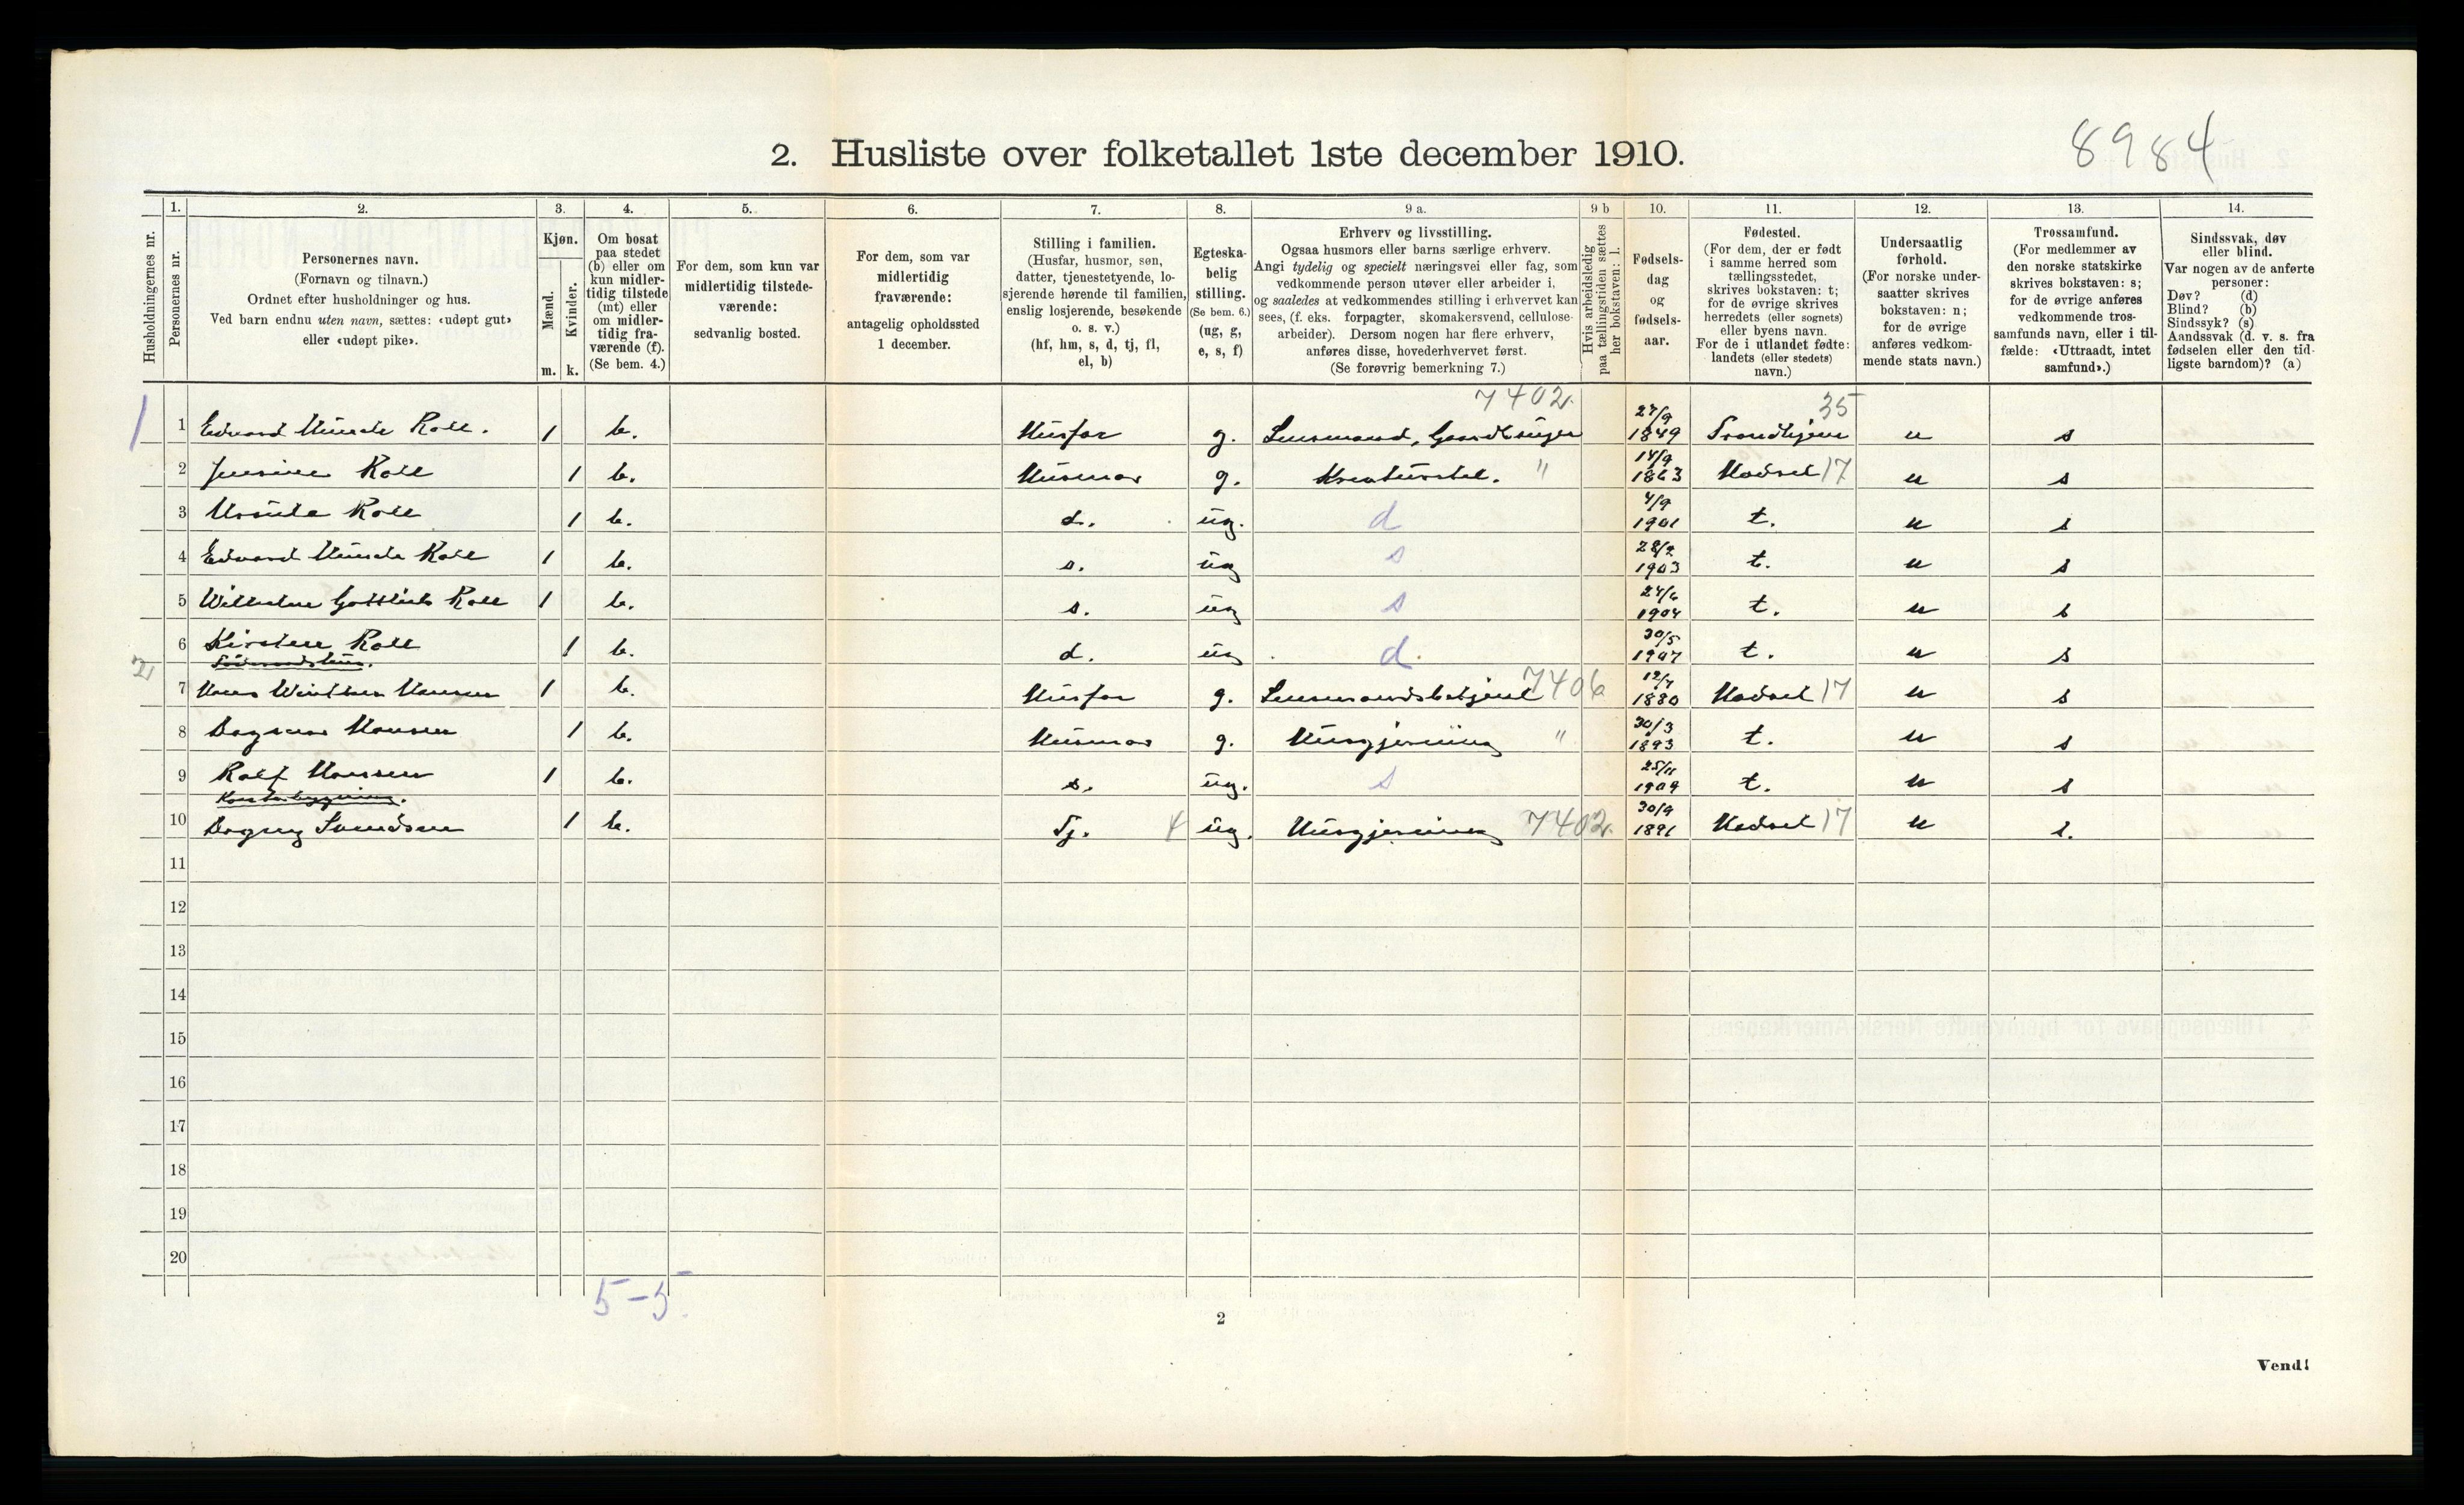 8984
2. Husliste over folketallet 1ste december 1910.
Husholdningernes nr.
1. Personernes nr.
2.
Personernes navn.
(Fornavn og tilnavn.)
Ordnet efter husholdninger og hus.
Ved barn endnu uten navn, sættes: «udøpt gut»
eller «udøpt pike».
3.
Kjøn.
Mænd. m.
Kvinder. k.
4.
Om bosat
paa stedet
(b) eller om
kun midler-
tidig tilstede
(mt) eller
om midler-
tidig fra-
værende (f).
(Se bem. 4.)
5.
For dem, som kun var
midlertidig tilstede-
værende:
sedvanlig bosted.
6.
For dem, som var
midlertidig
fraværende:
antagelig opholdssted
1 december.
7.
Stilling i familien.
(Husfar, husmor, søn,
datter, tjenestetyende, lo-
sjerende hørende til familien,
enslig losjerende, besøkende
o. s. v.)
(hf, hm, s, d, tj, fl,
el, b)
8.
Egteska-
belig
stilling.
(Se bem. 6.)
(ug, g,
e, s, f)
9 a.
Erhverv og livsstilling.
Ogsaa husmors eller barns særlige erhverv.
Angi tydelig og specielt næringsvei eller fag, som
vedkommende person utøver eller arbeider i,
og saaledes at vedkommendes stilling i erhvervet kan
sees, (f. eks. forpagter, skomakersvend, cellulose-
arbeider). Dersom nogen har flere erhverv,
anføres disse, hovederhvervet først.
(Se forøvrig bemerkning 7.)
9 b
Hvis arbeidsledig
paa tællingstiden sættes
her bokstaven: l.
10.
Fødsels-
dag
og
fødsels-
aar.
11.
Fødested.
(For dem, der er født
i samme herred som
tællingsstedet,
skrives bokstaven: t;
for de øvrige skrives
herredets (eller sognets)
eller byens navn.
For de i utlandet fødte:
landets (eller stedets)
navn.)
12.
Undersaatlig
forhold.
(For norske under-
saatter skrives
bokstaven: n;
for de øvrige
anføres vedkom-
mende stats navn.)
13.
Trossamfund.
(For medlemmer av
den norske statskirke
skrives bokstaven: s;
for de øvrige anføres
vedkommende tros-
samfunds navn, eller i til-
fælde: «Uttraadt, intet
samfund».)
14.
Sindssvak, døv
eller blind.
Var nogen av de anførte
personer:
Døv? (d)
Blind? (b)
Sindssyk? (s)
Aandssvak (d. v. s. fra
fødselen eller den tid-
ligste barndom)? (a)
7402 35
1 1 Edvard Munch Roll. 1 b. Husfar g. Lensmand, Gaardbruger 27/9 1849 Trondhjem n s
2 Jensine Roll 1 b. Husmor g. Kreaturstel. " 14/9 1863 Hadsel 17 n s
3 Ursula Roll 1 b. d. ug. d 4/9 1901 t. n s
4 Edvard Munch Roll 1 b. s. ug s 28/2 1903 t. n s
5 Wilhelm Gottlieb Roll 1 b. s. ug s 24/6 1904 t. n s
6 Kirsten Roll 1 b. d. ug d. 30/5 1907 t. n s
2
7 Hans Winther Hansen 1 b. Husfar g. Lensmandsbetjent 7406 12/7 1880 Hadsel 17 n s
8 Dagmar Hansen 1 b. Husmor g. Husgjerning " 30/3 1883 t. n s
9 Rolf Hansen 1 b. s. ug. s 25/11 1909 t. n s
Kontorbygning.
10 Dagny Svendsen 1 b. Tj. 4 ug. Husgjerning 7402 30/9 1891 Hadsel 17 n s.
11
12
13
14
15
16
17
18
19
20
5-5
2
Vend!